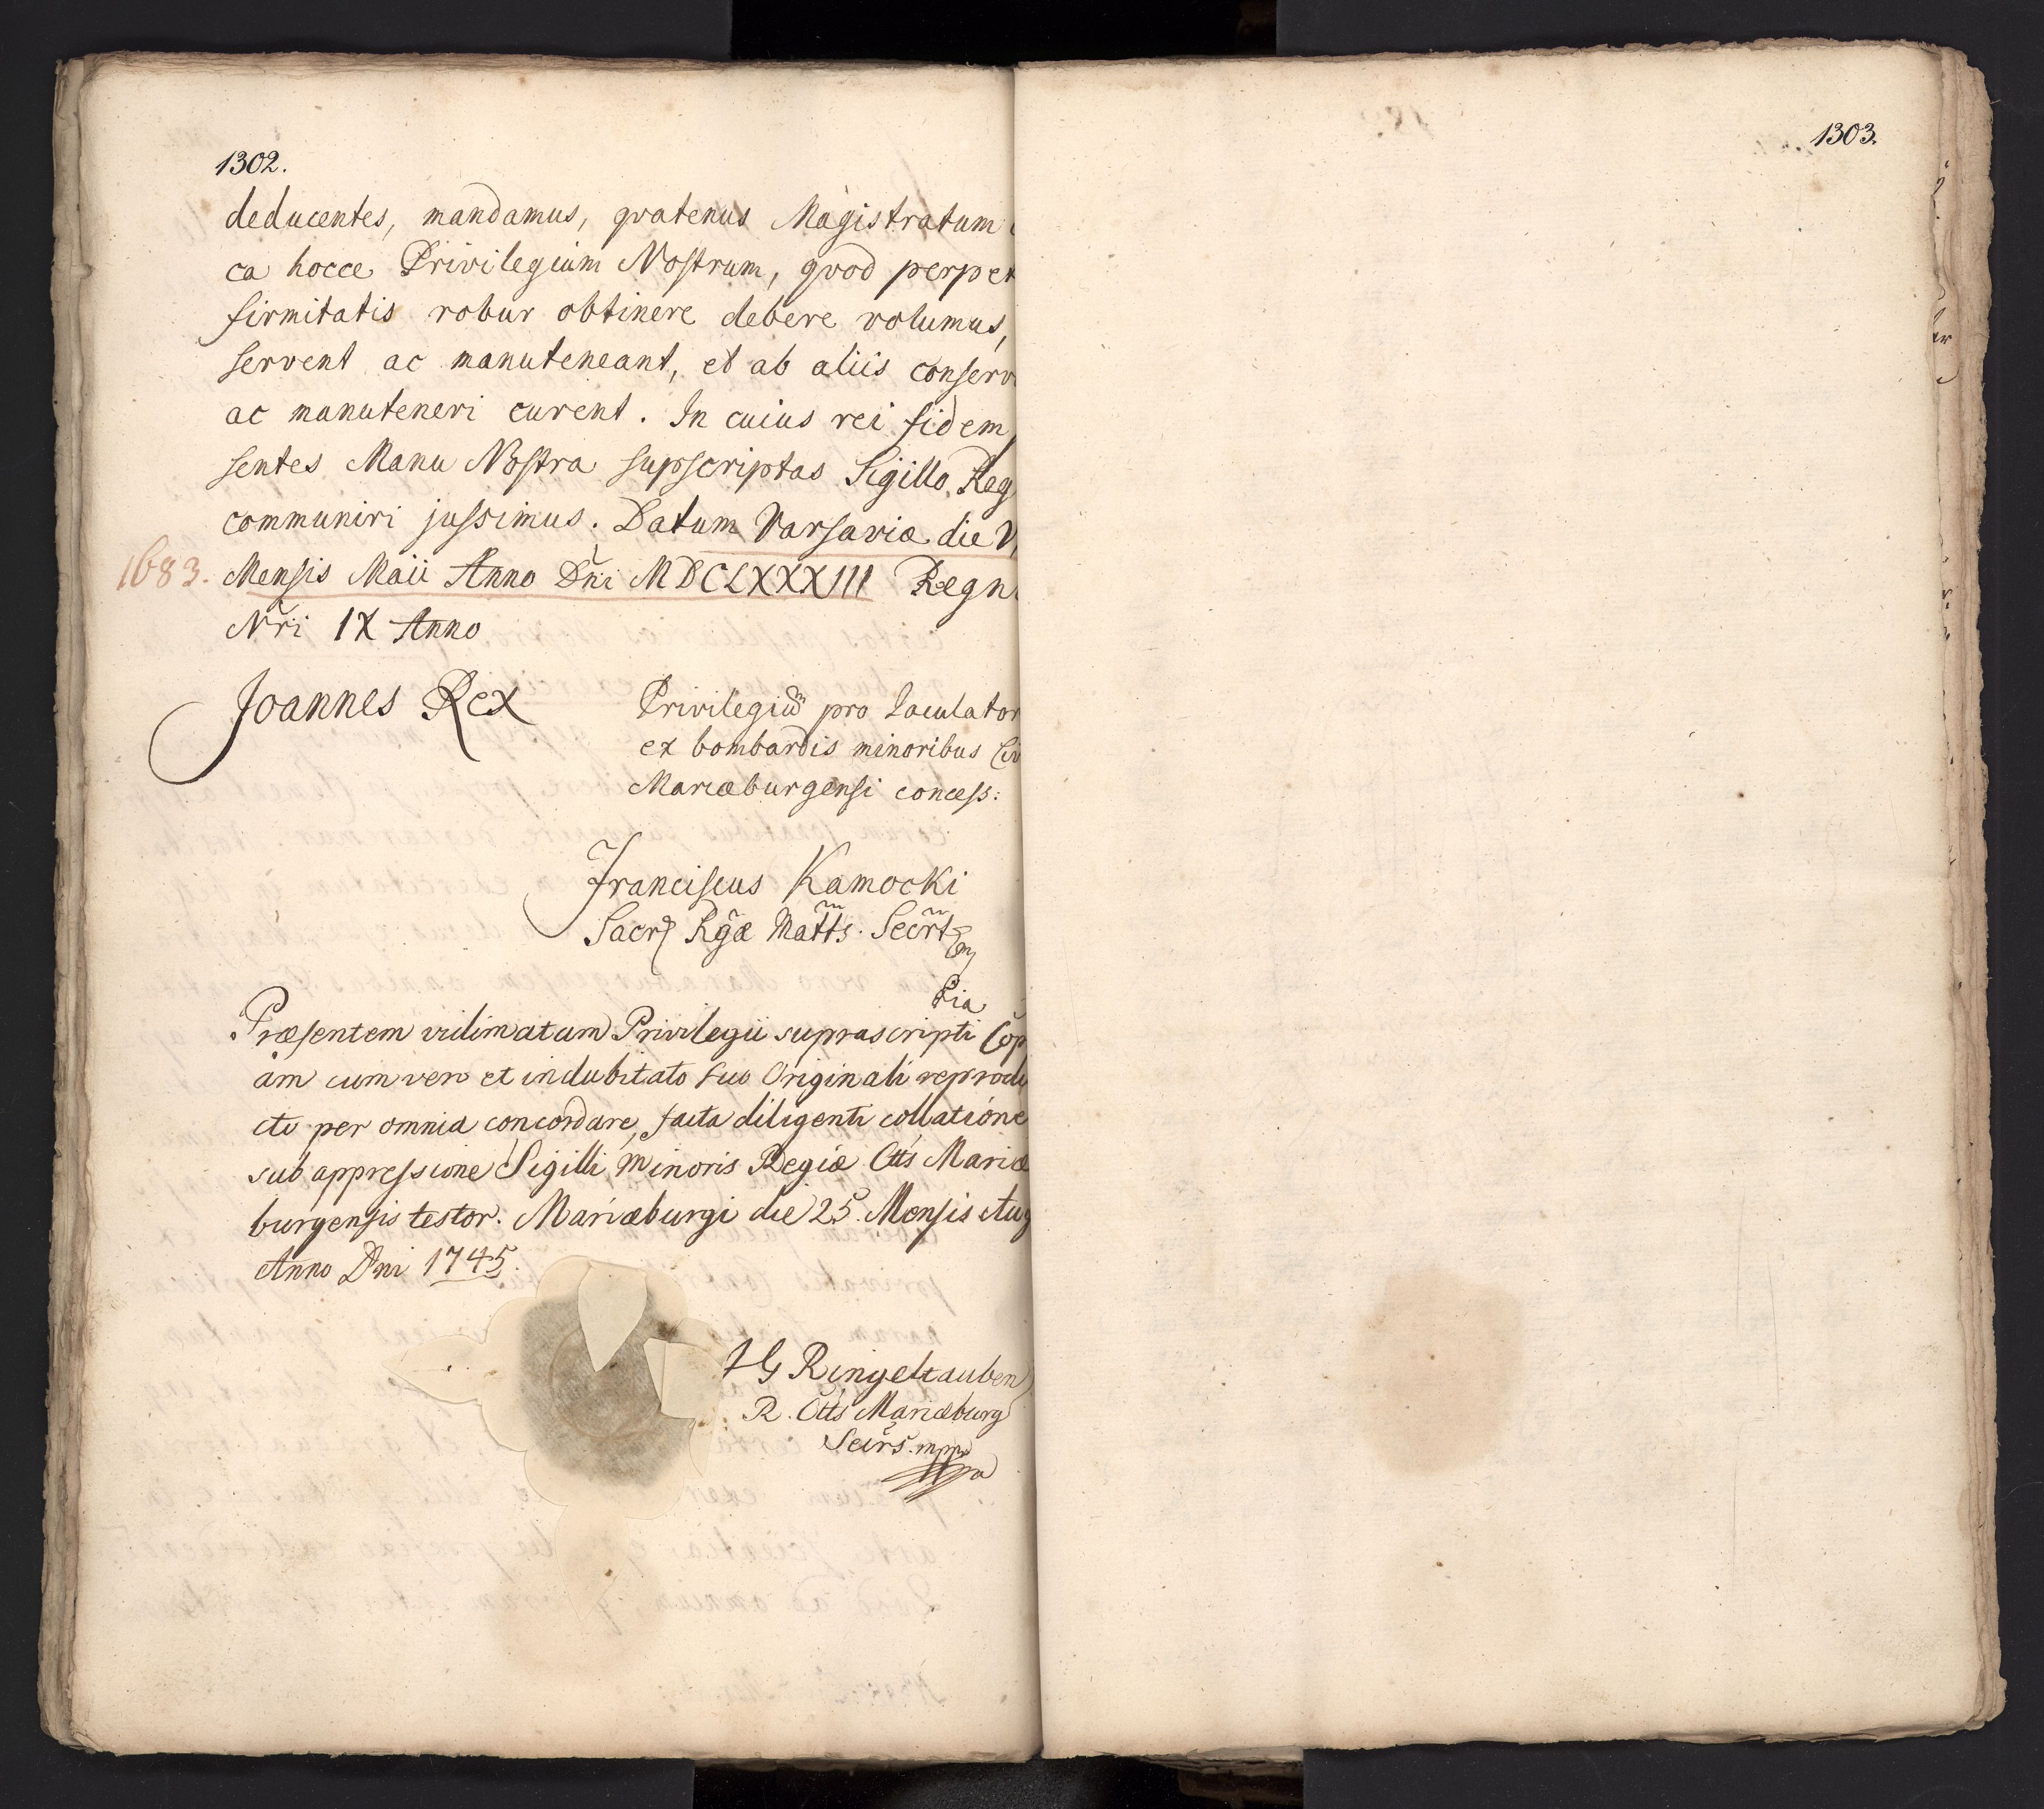 1302.
deducentes, mandamus, qvatenus Magistratum
ca hocce Privilegium Nostrum, qvod perpet
firmitatis robur obtinere debere volumus,
servent ac manuteneant, et ab aliis conserv
ac manuteneri curent. In cuius rei fidem
sentes Manu Nostra supscriptas Sigillo Reg
communiri jussimus. Datum Varsaviæ die V
1683. Mensis Maii Anno Dni MDCLXXXIII Regn
Nri IX Anno
Joannes Rex
Privilegiu pro Jaculator
ex bombardis minoribus Civ
Mariæburgensi concess:
Franciscus Kamocki
Sacr Rgæ Matts. Secrt
Pia
Præsentem vidimatam Privilegii suprascripti Cop
am cum vero et indubitato suo Originali reprodu
cto per omnia concordare, facta diligenti collatione
sub appressione Sigilli minoris Regiæ Ctts Mariæ
burgensis testor. Mariæburgi die 25. Mensis Aug
Anno Dni 1745.
JG Ringeltauben
R. Ctts Mariæburg
Secrs. mppa
1303.